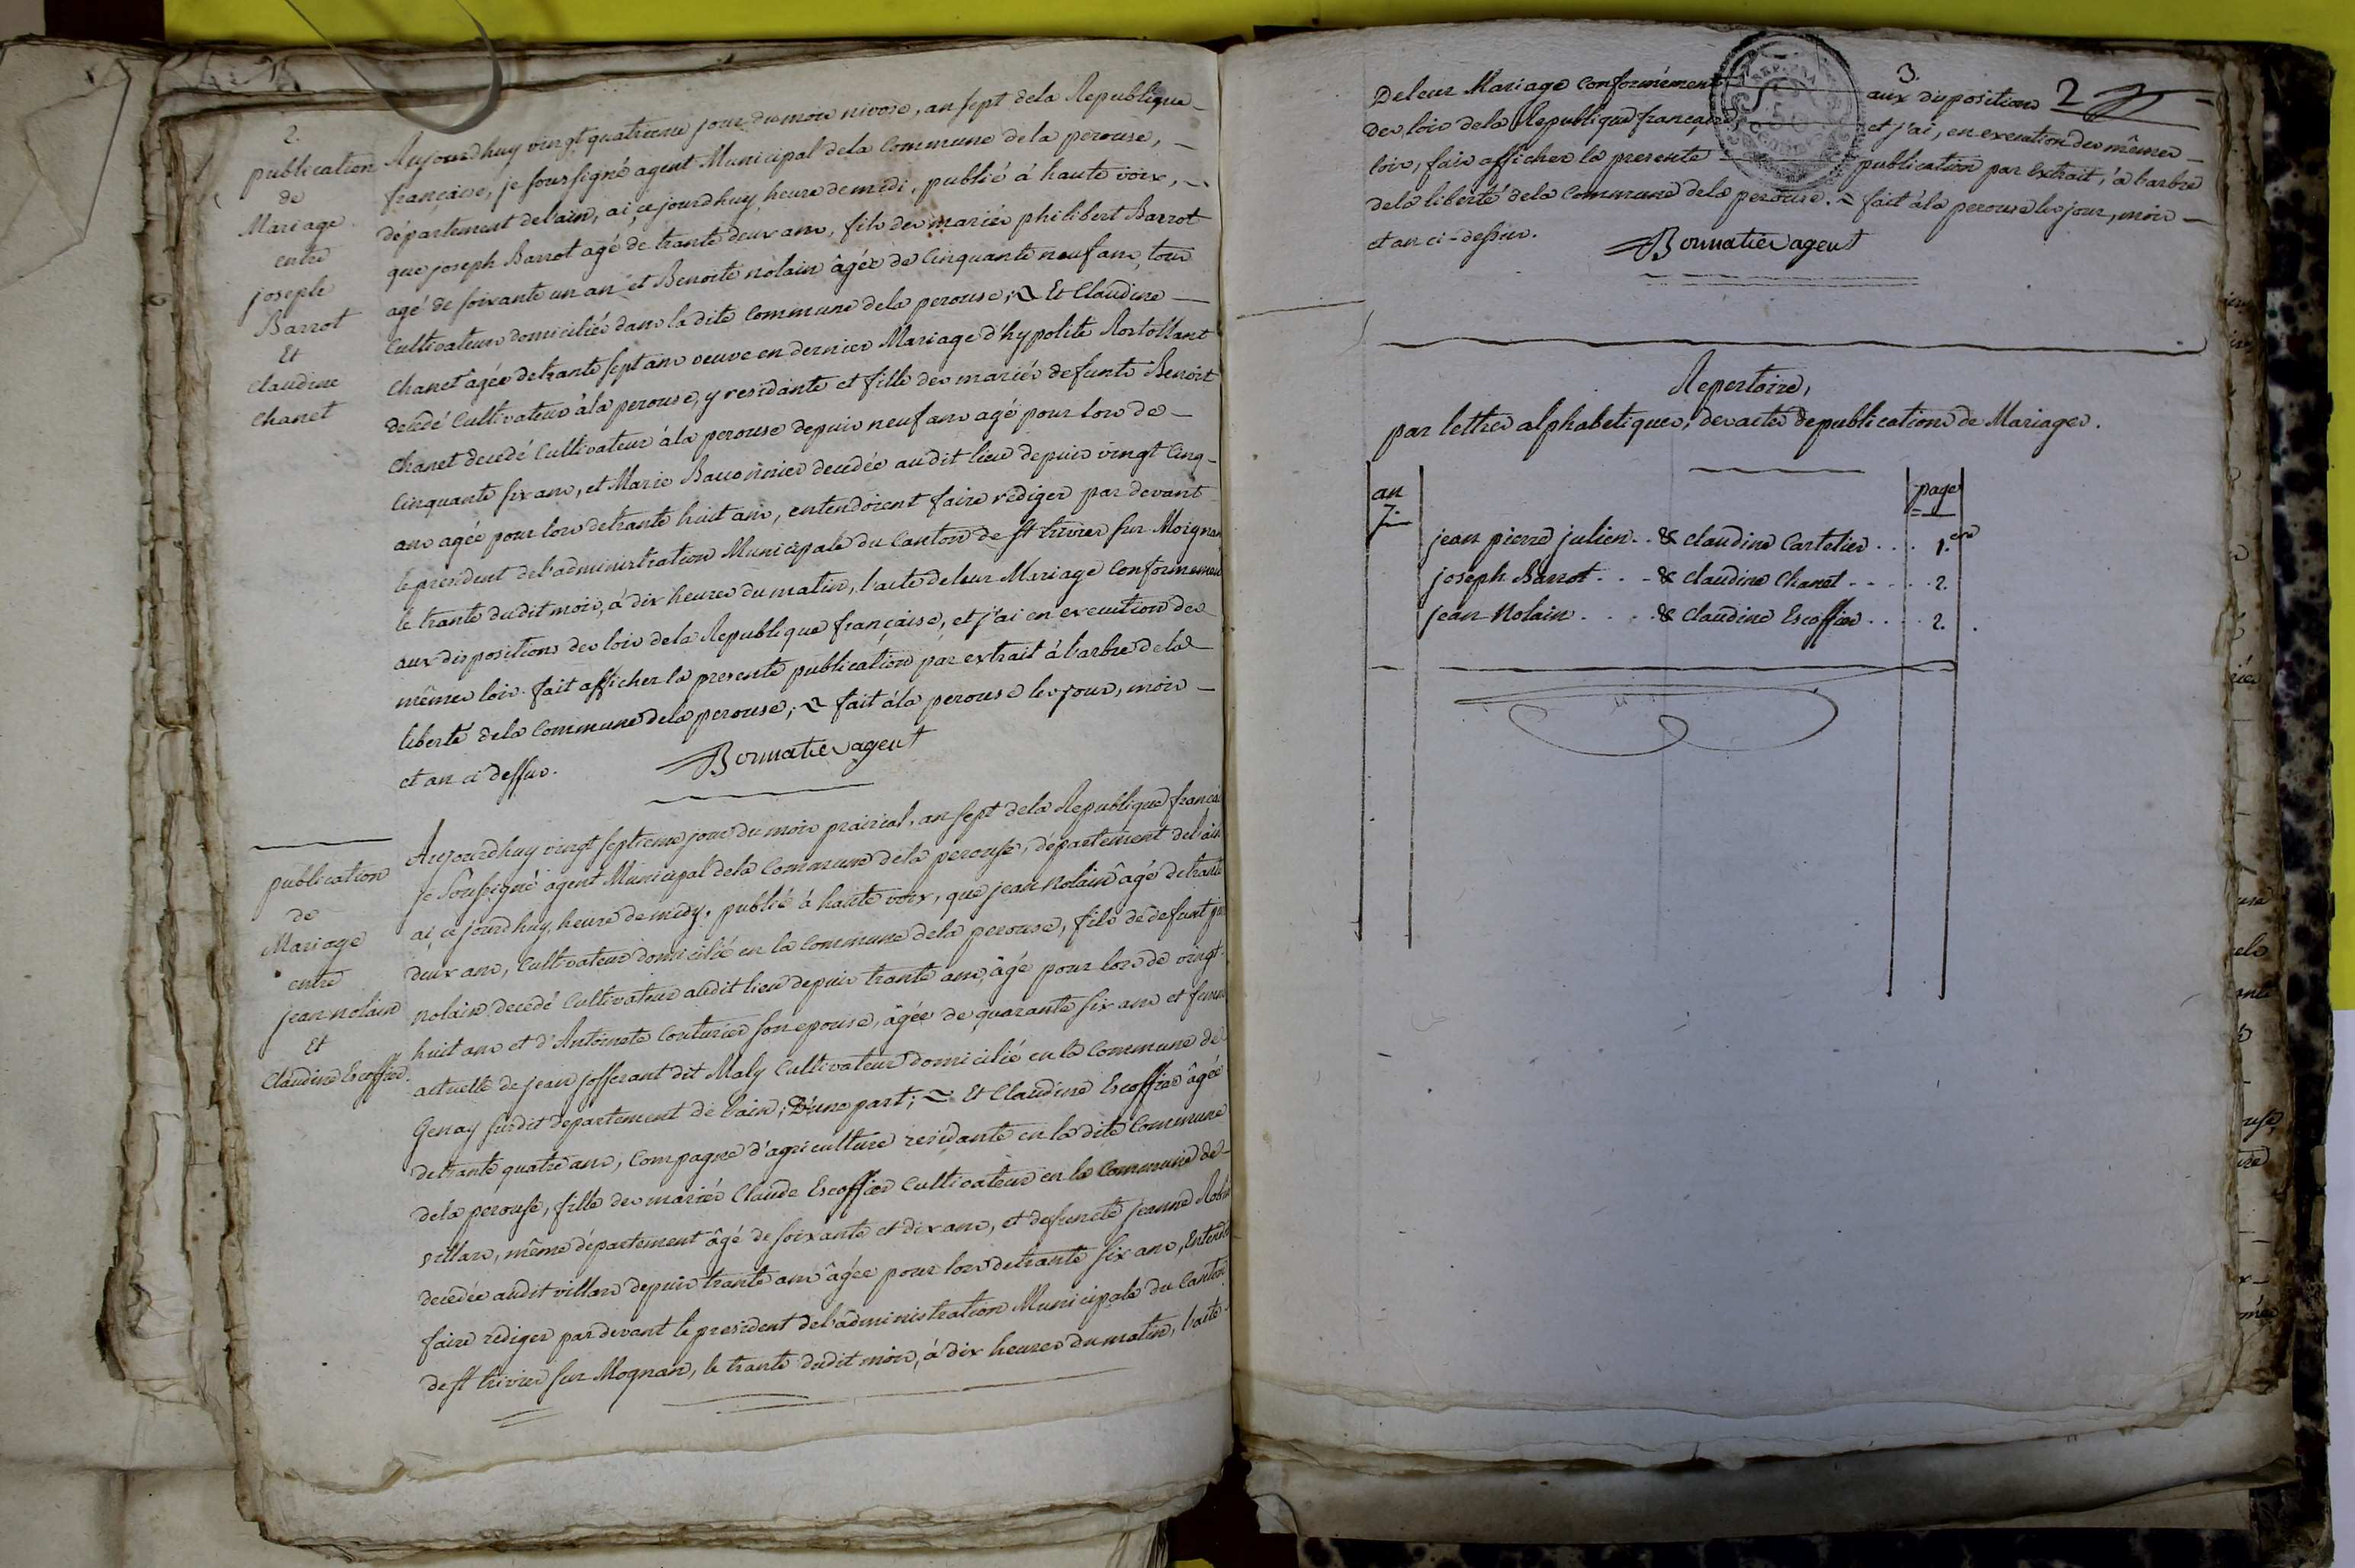 2.
publication
de
Mariage
entre
joseph
Barrot
Et
Claudine
Chanet
Aujourdhuy vingt quatrieme jour du mois nivose, an sept dela Republique
française, je soussigné agent Municipal dela Commune dela perouse,
département delain, ai, ce jourdhuy, heure de midi, publié à haute voix,
que joseph Barrot agé de trante deux ans, fils des mariés philibert Barrot
agé de soixante un an et Benoite nolain âgée de Cinquante neuf ans, tous
Cultivateurs domiciliés dans la dite Commune dela perouse; Et Claudine
Chanet âgée de trante sept ans veuve en dernier Mariage d'hypolite Rostollant
decedé Cultivateur àla perouse, y residante et fille des mariés defunts Benoit
Chanet decedé Cultivateur àla perouse depuis neuf ans agé pour lors de
Cinquante six ans, et Marie decedée audit lieu depuis vingt Cinq
ans agée pour lors de trante huit ans, entendoient faire rediger par devant
le president del'administration Municipale du Canton de St trivier sur Moignan
le trante dudit mois, à dix heures du matin, l'acte deleur Mariage Conformement
aux dispositions des lois dela Republique française, et j'ai en execution des
mêmes lois fait afficher la presente publication par extrait à l'arbre dela
liberté dela Commune dela perouse; fait àla perouse les jour, mois
et an ci dessus.
Bonnatier agent
publication
de
Mariage
entre
jean nolain
Et
Claudine Escoffier.
Aujourdhuy vingt septieme jour du mois prairial, an sept dela Republique français
je Soussigné agent Municipal dela Commune dela perouse, département delain
ai, ce jourdhuy, heure de midy, publié à haute voix, que jean nolain âgé de trante
deux ans, Cultivateur domicilié en la Commune dela perouse, fils de defunt
nolain decedé Cultivateur audit lieu depuis trante ans, âgé pour lors de vingt
huit ans et d'Antoinete Couturier son epouse, âgée de quarante six ans et femme
actuelle de jean jofferant dit Maly Cultivateur domicilié en la Commune de
Genay susdit departement de lain; D'une part; Et Claudine Escoffier âgée
de trante quatre ans, Compagne d'agriculture residante en la dite Commune
dela perouse, fille des mariés Claude Escoffier Cultivateur en la Commune de
villars, même département âgé de soixante et dix ans, et defuncte jeanne
decedée audit villars depuis trante ans âgée pour lors de trante six ans, Entende
faire rediger par devant le president del'administration Municipale du Canton
de St trivier sur Mognan, le trante dudit mois, à dix heures du matin, l'acte
3.
2
Deleur Mariage Conformément aux dispositions
des lois dela Republique française, et j'ai, en execution des mêmes
lois, fais afficher la presente publication par Extrait, à l'arbre
dela liberté dela Commune dela perouse. fait àla perouse les jour, mois
et an ci-dessus.
Bonnatier agent
Repertoire,
par lettres alphabetiques, des actes de publications de Mariages.
an
7.
page
jean pierre julien . . & Claudine Cartelier . . . 1.ere
joseph Barrot . . . & Claudine Chanet . . . . . 2.
jean Nolain . . . . & Claudine Escoffier . . . . 2.